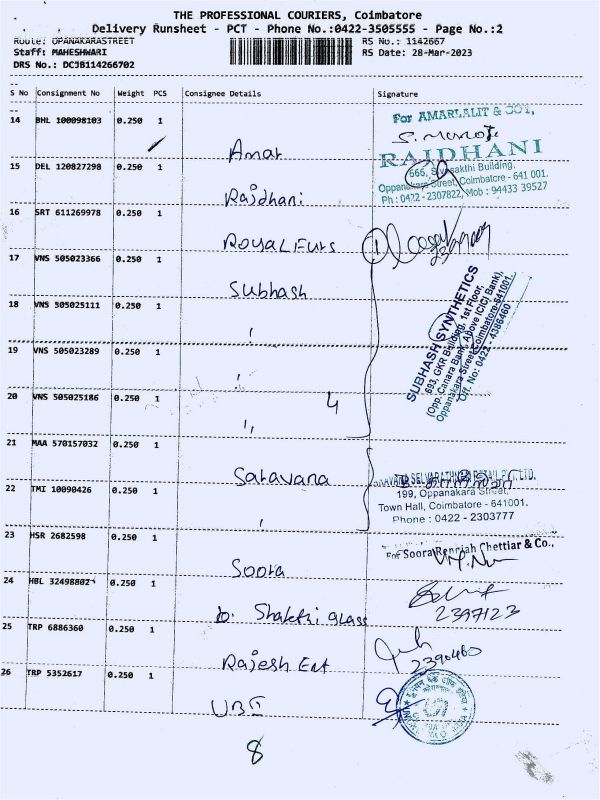 THE PROFESSIONAL COURIERS, Coimbatore
Delivery Runsheet - PCT - Phone No.:0422-3505555 - Page No.:2
Route: OPANAKARASTREET
RS No.: 1142667
Staff: MAHESHWARI
RS Date: 28-Mar-2023
DRS No.: DCJB114266702
S No Consignment No Weight PCS Consignee Details Signature
14 BHL 100098103 0.250 1 Amar
For AMARLALIT & COY,
15 DEL 120827298 0.250 1 Rajdhani
RAJDHANI
666, Sivasakthi Building,
Oppanakara Street, Coimbatore - 641 001.
Ph : 0422 - 2307822, Mob : 94433 39527
16 SRT 611269978 0.250 1 Royal Furs
17 VNS 505023366 0.250 1 Subhash
18 VNS 505025111 0.250 1 "
19 VNS 505023289 0.250 1 "
20 VNS 505025186 0.250 1 "
4
SUBHASH SYNTHETICS
693, GKR Building, 1st Floor,
(Opp. Canara Bank, Above ICICI Bank),
Oppanakara Street, Coimbatore-641001.
Off. No: 0422 - 4386460
21 MAA 570157032 0.250 1 Saravana
22 TMI 10090426 0.250 1 "
199, Oppanakara Street,
Town Hall, Coimbatore - 641001.
Phone : 0422 - 2303777
23 HSR 2682598 0.250 1 Soora
For Soora Renniah Chettiar & Co.,
24 HBL 32498802 0.250 1 Shakthi glass
2397123
25 TRP 6886360 0.250 1 Rajesh Ent
2390460
26 TRP 5352617 0.250 1 UBI
8